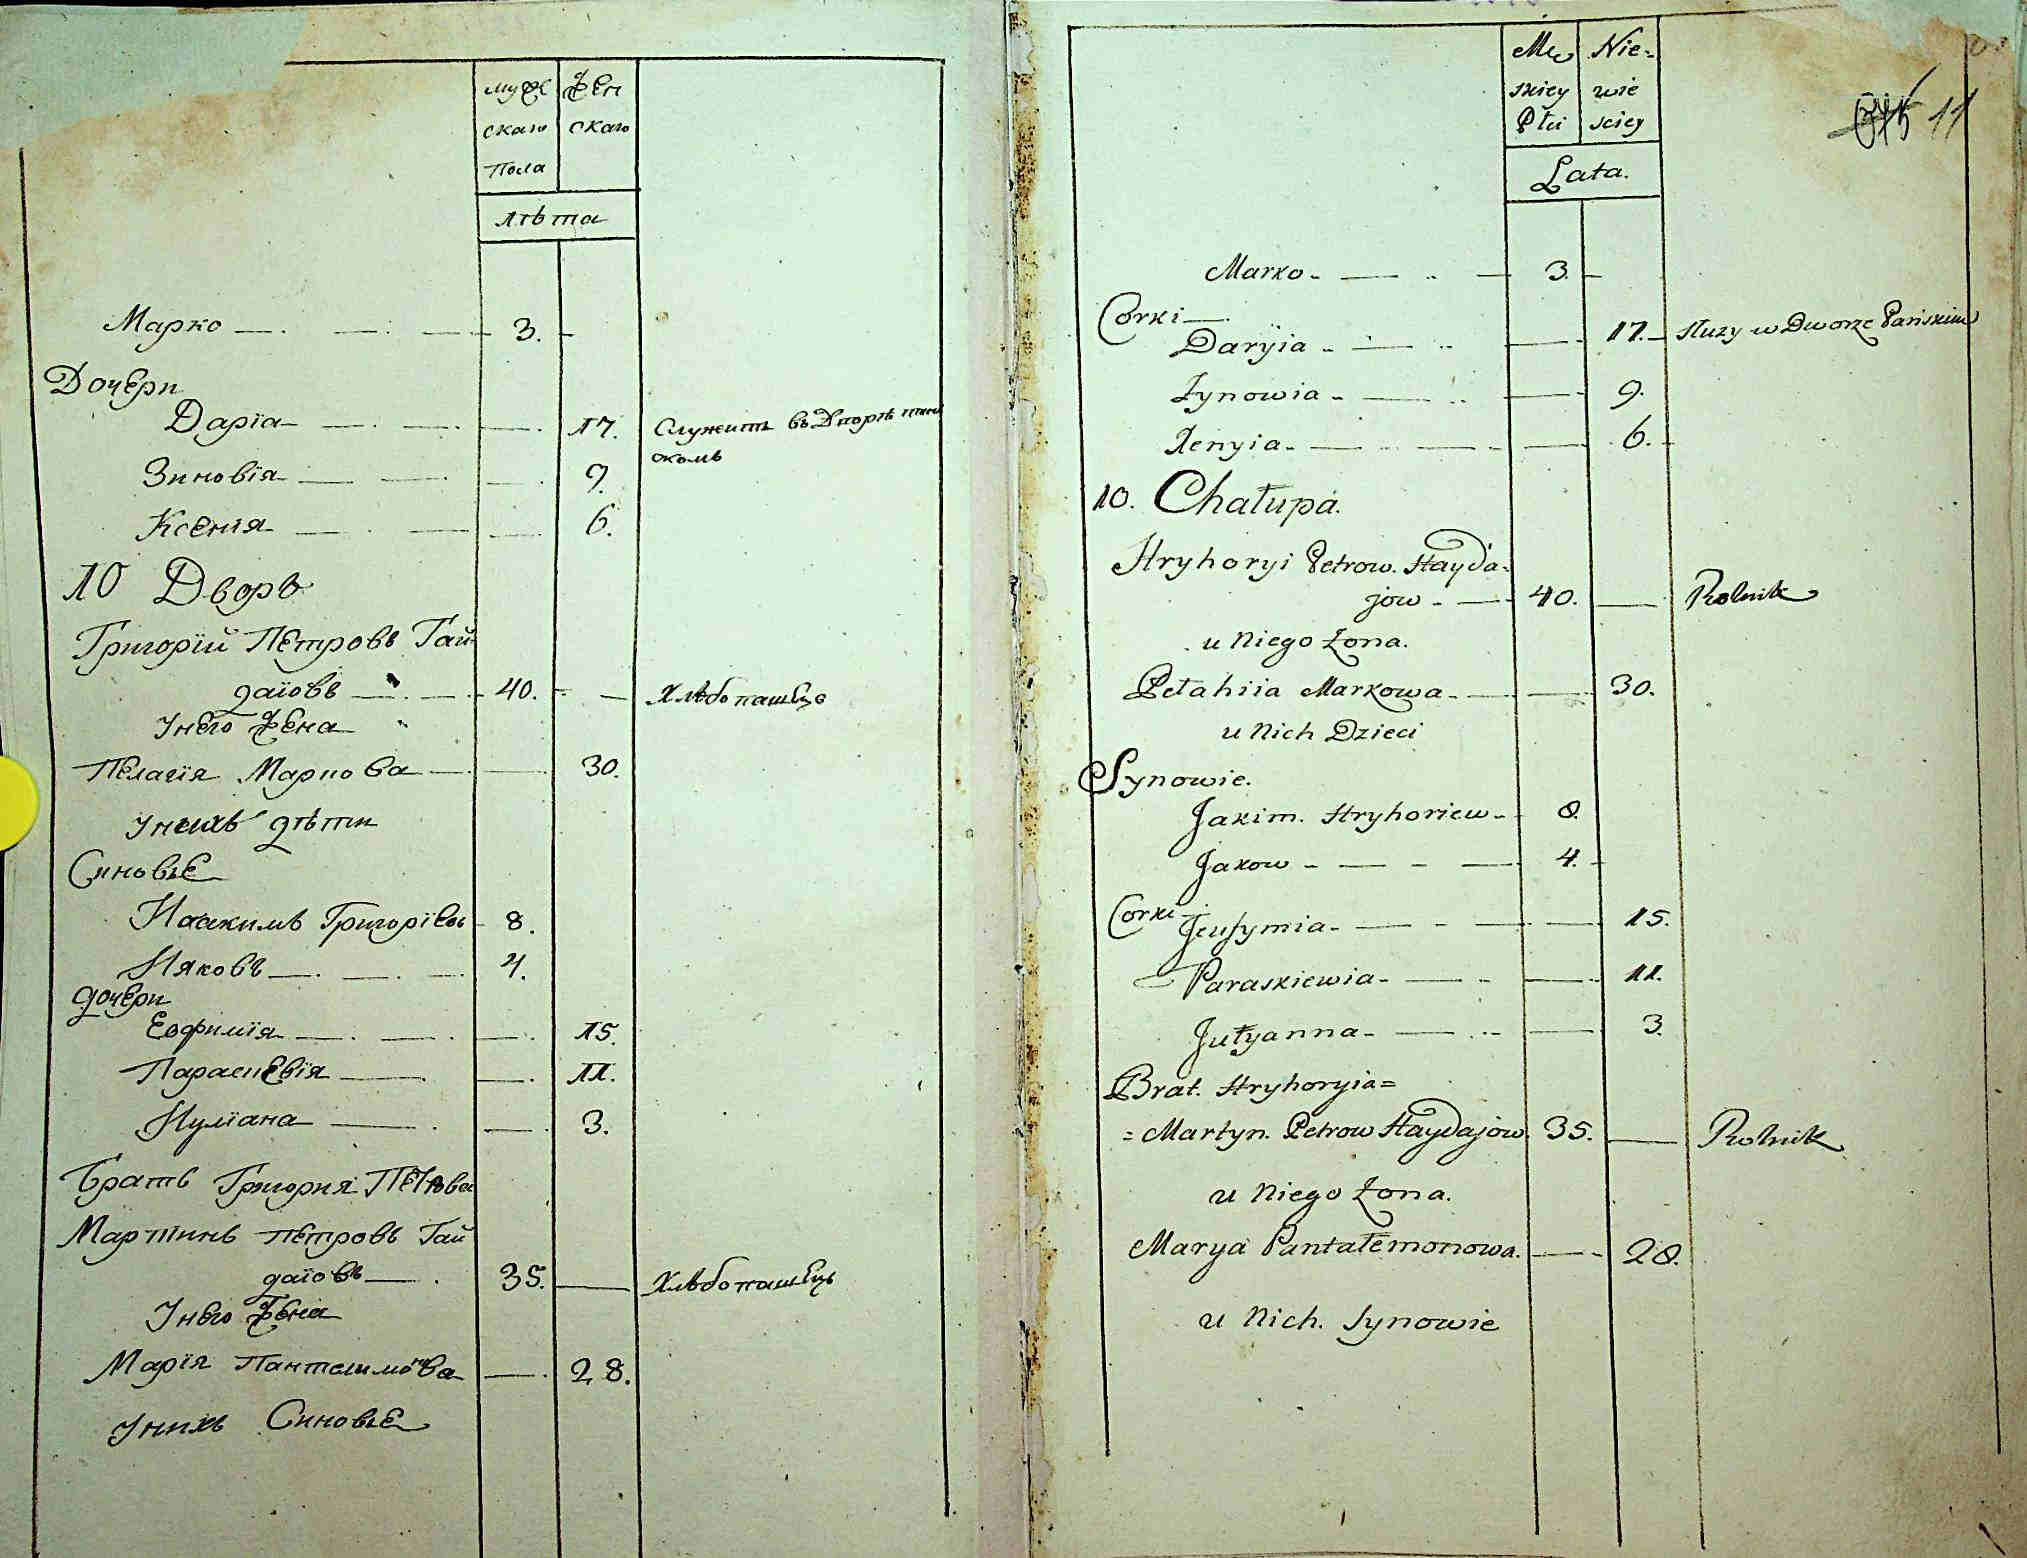 муже жен
скаго скаго
пола
лѣта
Марко 3.
Дочери
Дарїа 17. Служитъ въ Дворѣ пан
скомъ
Зиновїя 9.
Ксенїя 6.
10 Дворъ
Григорїй Петровъ Гай-
даїовъ 40. Хлѣбопашецъ
Унего Жена
Пелагїя Маркова 30.
Унихъ дѣти
Синовье
Иоакимъ Григорїевъ 8.
Ияковъ 4.
дочери
Евфимїя 15.
Параскевїя 11.
Иулїана 3.
Братъ Григория Петрова
Мартинъ Петровъ Гай
даїовъ 35. Хлѣбопашецъ
Унего Жена
Марїя Пантелимонова 28.
Унихъ Синовье
Mę Nie-
skiey wie
Płci sciey
11
Lata.
Marko 3.
Corki
Daryia 17. Służy w Dworze Pańskim
Zynowia 9.
Xenyia 6.
10. Chałupa.
Hryhoryi Petrow. Hayda-
jow 40. Rolnik
u Niego Żona.
Pełahiia Markowa 30.
u Nich Dzieci
Synowie.
Jakim. Hryhoriew 8.
Jakow 4.
Corki
Jeufymia 15.
Paraskiewia 11.
Jułyanna 3.
Brat. Hryhoryia=
=Martyn. Petrow Haydajow 35. Rolnik
u Niego Żona.
Marya Pantałemonowa. 28.
u Nich. Synowie